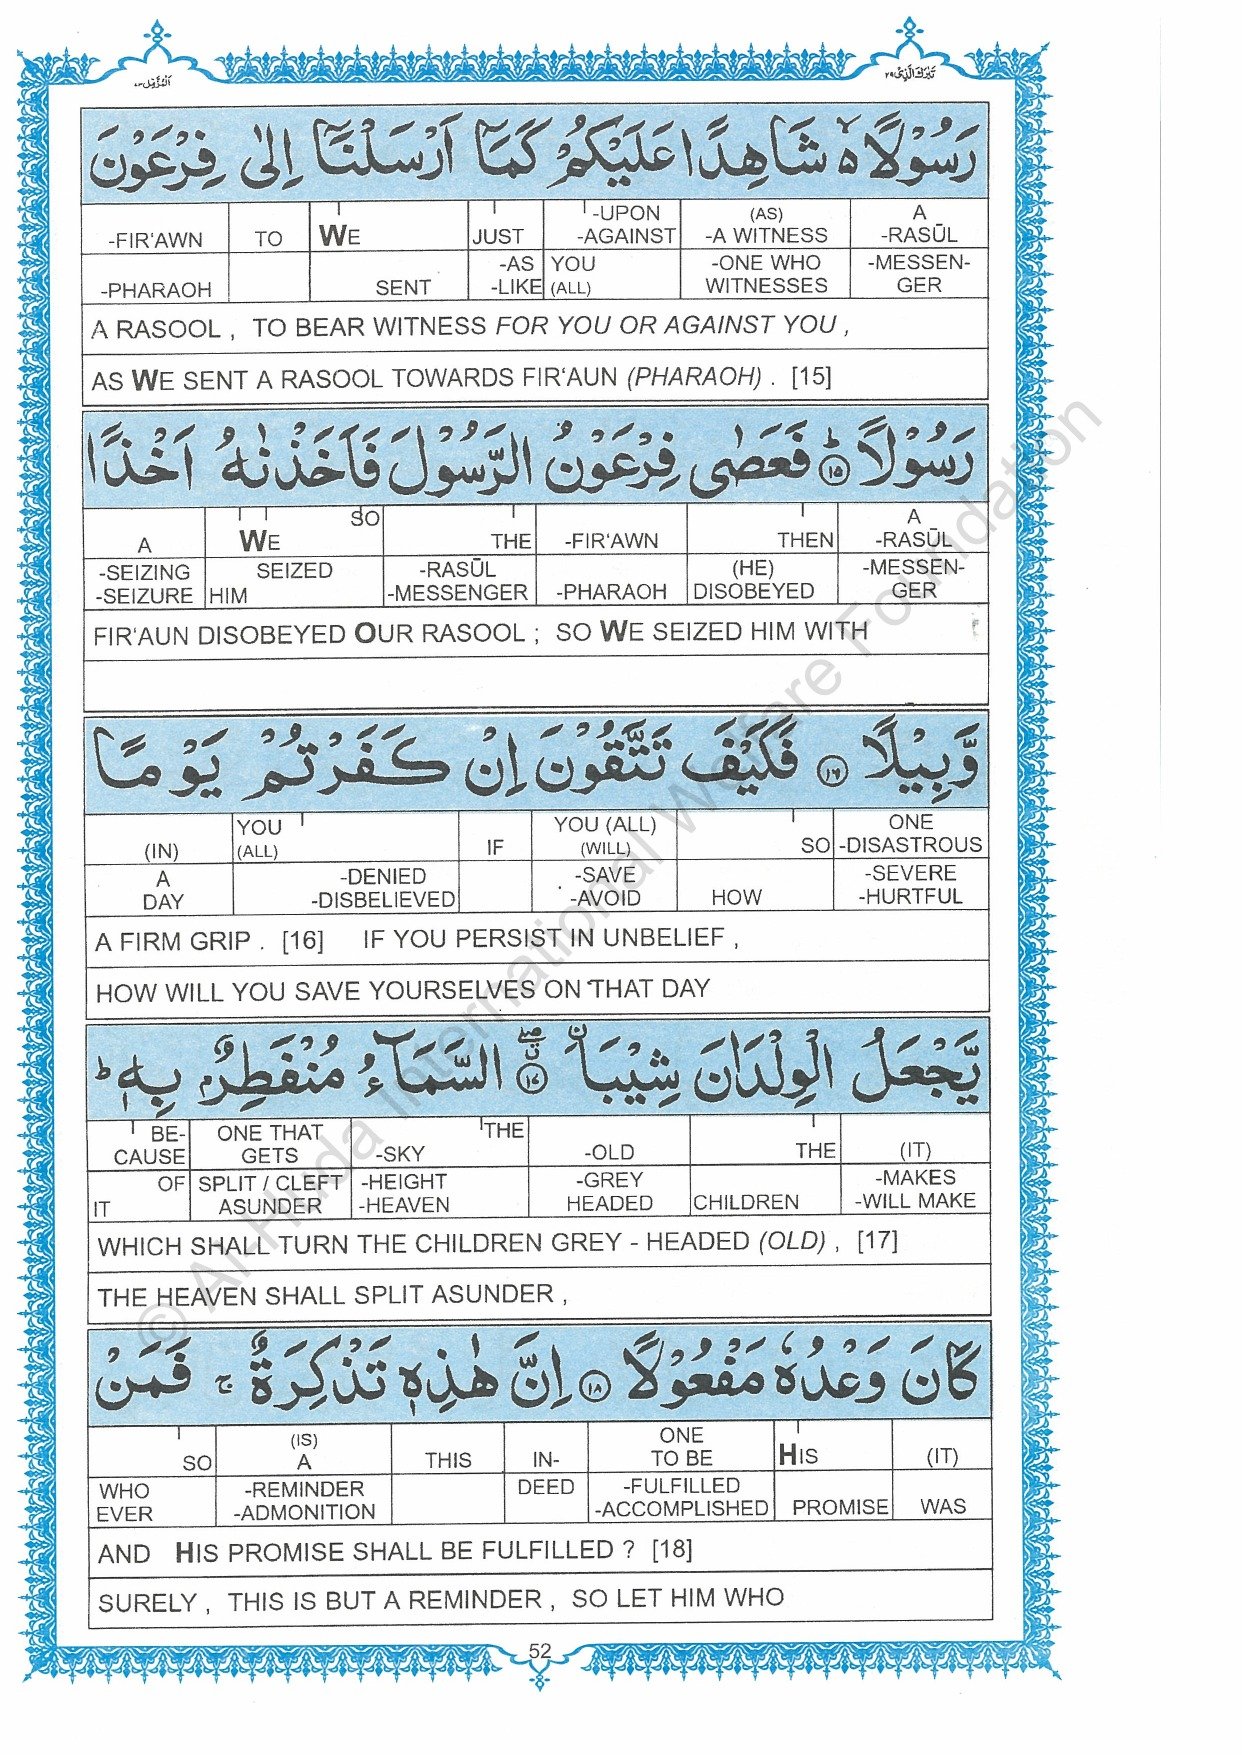 اَلْمُزَّمِّل ٧٣
تَبٰرَكَ الَّذِیْ ٢٩
رَسُوْلًا ۙ۬ شَاهِدًا عَلَیْكُمْ كَمَاۤ اَرْسَلْنَاۤ اِلٰی فِرْعَوْنَ
-FIR‘AWN TO WE JUST -UPON -AGAINST (AS) -A WITNESS A -RASŪL
-PHARAOH SENT -AS -LIKE YOU (ALL) -ONE WHO WITNESSES -MESSEN- GER
A RASOOL , TO BEAR WITNESS FOR YOU OR AGAINST YOU ,
AS WE SENT A RASOOL TOWARDS FIR‘AUN (PHARAOH) . [15]
رَسُوْلًا ؕ۝۱۵ فَعَصٰی فِرْعَوْنُ الرَّسُوْلَ فَاَخَذْنٰهُ اَخْذًا
A SO WE THE -FIR‘AWN THEN A -RASŪL
-SEIZING -SEIZURE SEIZED HIM -RASŪL -MESSENGER -PHARAOH (HE) DISOBEYED -MESSEN- GER
FIR‘AUN DISOBEYED OUR RASOOL ; SO WE SEIZED HIM WITH
وَّبِیْلًا ۝۱۶ فَكَیْفَ تَتَّقُوْنَ اِنْ كَفَرْتُمْ یَوْمًا
(IN) YOU (ALL) IF YOU (ALL) (WILL) SO ONE -DISASTROUS
A DAY -DENIED -DISBELIEVED -SAVE -AVOID HOW -SEVERE -HURTFUL
A FIRM GRIP . [16] IF YOU PERSIST IN UNBELIEF ,
HOW WILL YOU SAVE YOURSELVES ON THAT DAY
یَّجْعَلُ الْوِلْدَانَ شِیْبَا ۝۱۷ السَّمَآءُ مُنْفَطِرٌۢ بِهٖ ؕ
BE- CAUSE ONE THAT GETS THE -SKY -OLD THE (IT)
OF IT SPLIT / CLEFT ASUNDER -HEIGHT -HEAVEN -GREY HEADED CHILDREN -MAKES -WILL MAKE
WHICH SHALL TURN THE CHILDREN GREY - HEADED (OLD) , [17]
THE HEAVEN SHALL SPLIT ASUNDER ,
كَانَ وَعْدُهٗ مَفْعُوْلًا ۝۱۸ اِنَّ هٰذِهٖ تَذْكِرَةٌ ۚ فَمَنْ
SO (IS) A THIS IN- ONE TO BE HIS (IT)
WHO EVER -REMINDER -ADMONITION DEED -FULFILLED -ACCOMPLISHED PROMISE WAS
AND HIS PROMISE SHALL BE FULFILLED ? [18]
SURELY , THIS IS BUT A REMINDER , SO LET HIM WHO
52
© Al-Huda International Welfare Foundation